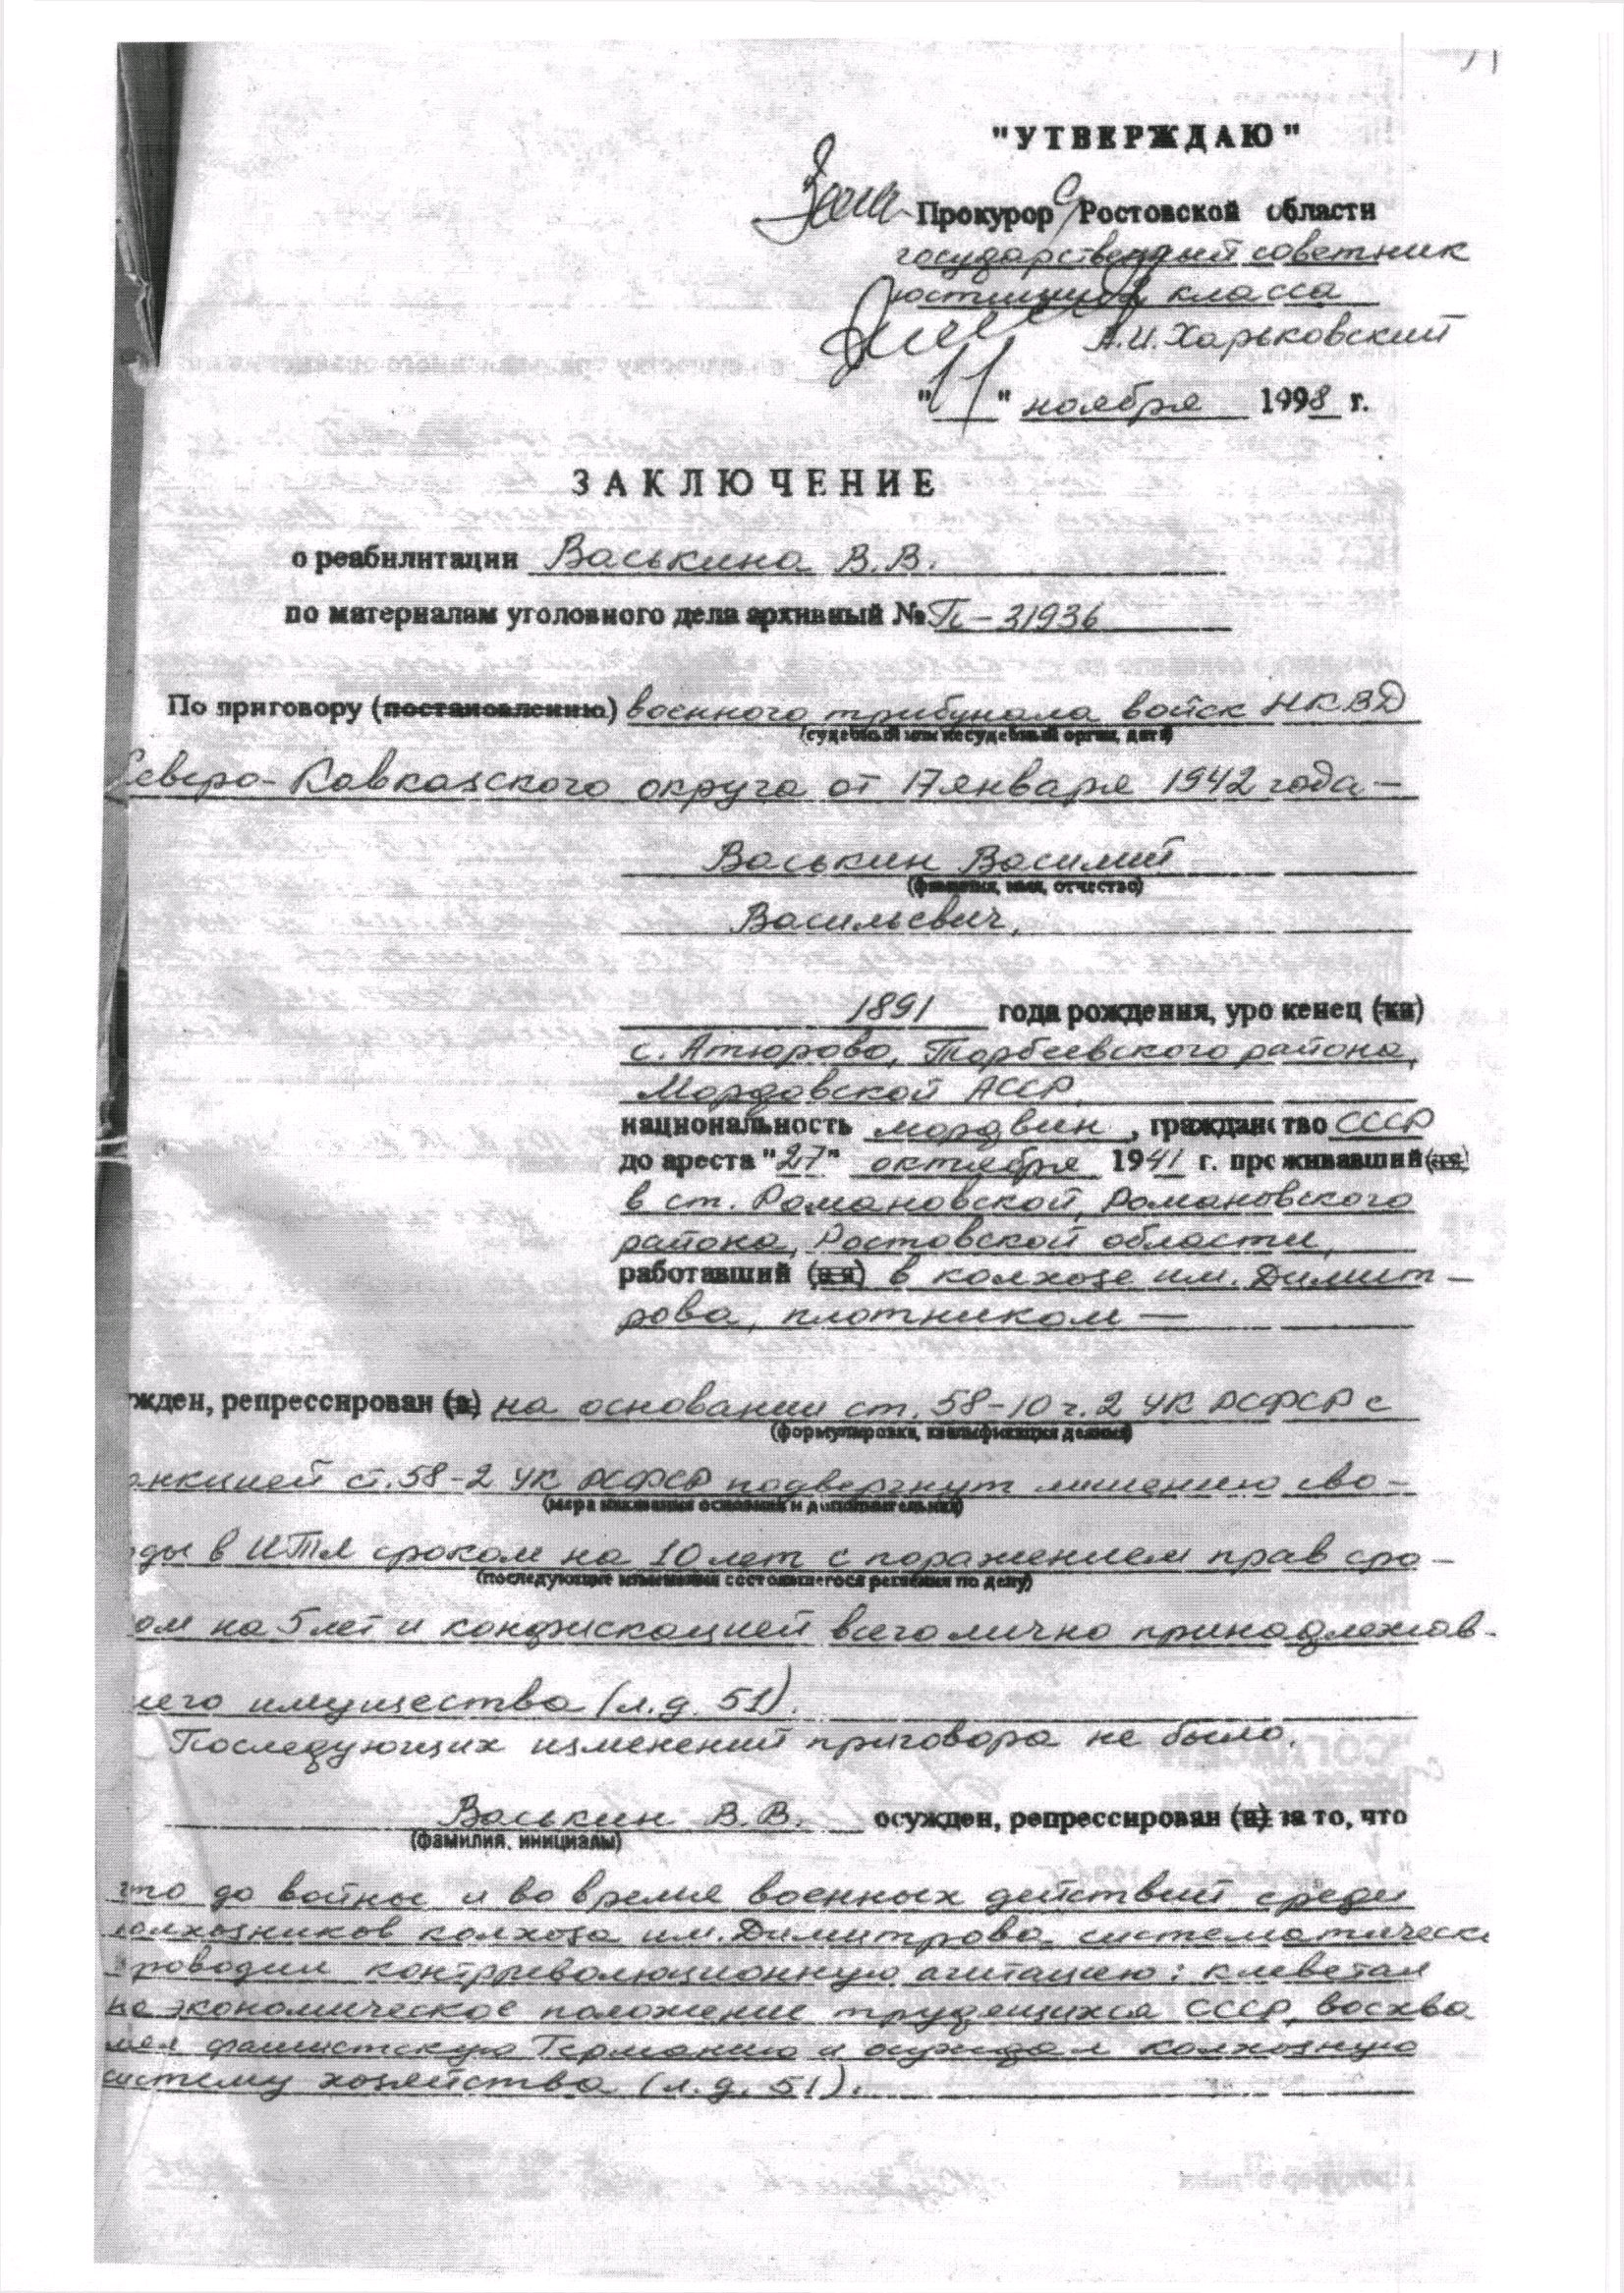 "УТВЕРЖДАЮ"
Прокурор Ростовской области
государственный советник
юстиции класса
А.И. Харьковский
"11" ноября 1998 г.
ЗАКЛЮЧЕНИЕ
о реабилитации Васькина В.В.
по материалам уголовного дела архивный № П-31936
По приговору (постановлению) военного трибунала войск НКВД
(судебный или несудебный орган, дата)
Северо-Кавказского округа от 17 января 1942 года —
Васькин Василий
(фамилия, имя, отчество)
Васильевич,
1891 года рождения, уроженец (ка)
с. Атюрово, Торбеевского района,
Мордовской АССР,
национальность мордвин, гражданство СССР
до ареста "27" октября 1941 г. проживавший (ая)
в ст. Романовской, Романовского
района, Ростовской области,
работавший (ая) в колхозе им. Димит-
рова, плотником —
ужден, репрессирован (а) на основании ст. 58-10 ч. 2 УК РСФСР с
(формулировка, квалификация деяния)
анкцией ст. 58-2 УК РСФСР подвергнут лишению сво-
(мера наказания основная и дополнительная)
оды в ИТЛ сроком на 10 лет с поражением прав сро-
(последующие изменения состоявшегося решения по делу)
ом на 5 лет и конфискацией всего лично принадлежав-
шего имущества (л.д. 51).
Последующих изменений приговора не было.
Васькин В.В. осужден, репрессирован (а) за то, что
(фамилия, инициалы)
что до войны и во время военных действий среди
колхозников колхоза им. Димитрова систематически
проводил контрреволюционную агитацию: клеветал
на экономическое положение трудящихся СССР, восхва
лял фашистскую Германию и осуждал колхозную
систему хозяйства (л.д. 51).